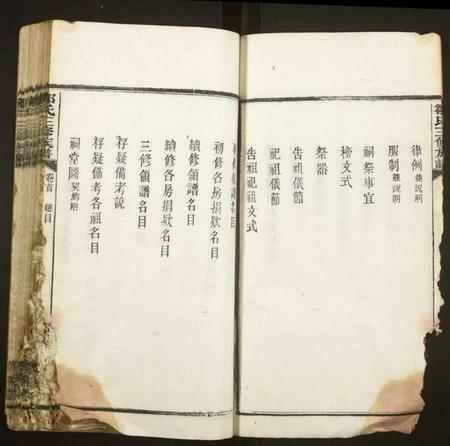 鄒氏三修族譜
律例 韱説明
服制 韱説明
祠祭事宜
榜文式
祭器
告祖儀節
祀祖儀節
告祖祀祖文式
初修各房捐欵名目
續修領譜名目
續修各房捐欵名目
三修領譜名目
存疑備考説
存疑備考各祖名目
祠堂圖 契約附
鄒氏三修族譜 卷首 總目